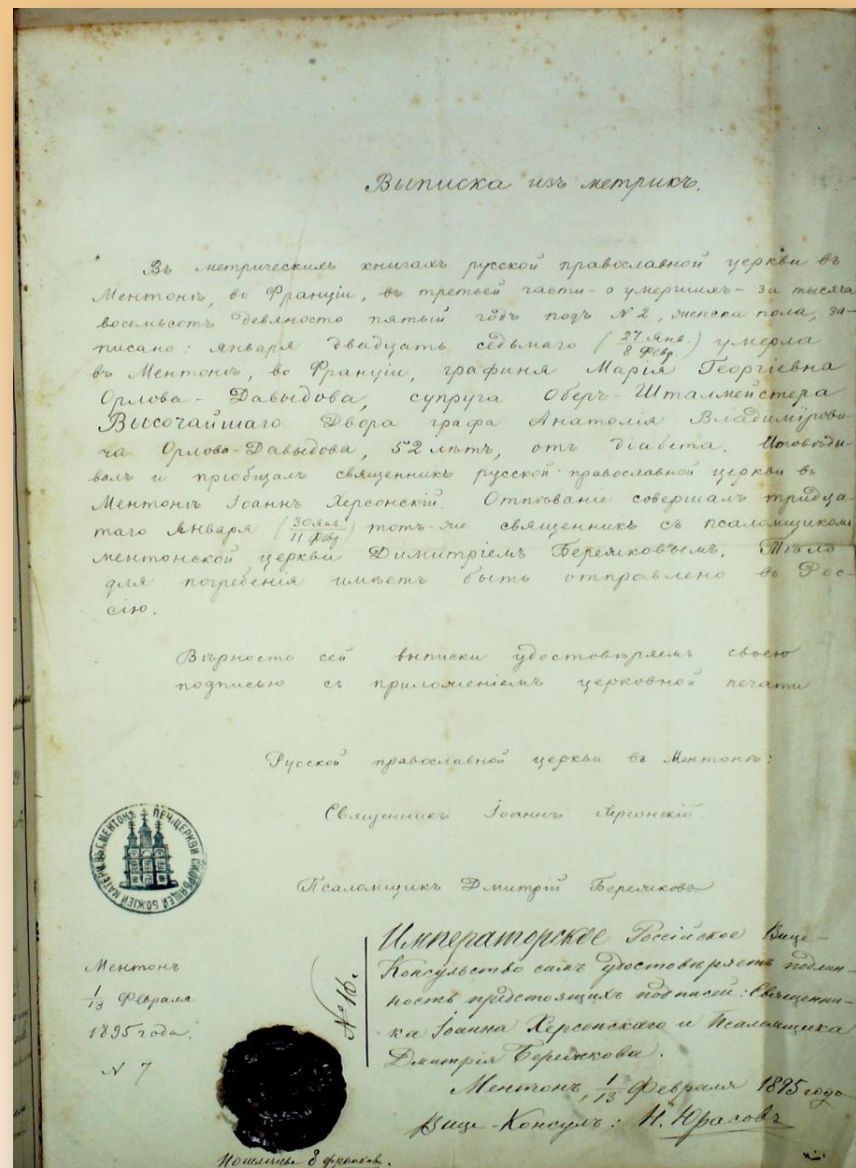 Выписка изъ метрикъ.
Въ метрическихъ книгахъ русской православной церкви въ
Ментонѣ, во Франціи, въ третьей части - о умершихъ - за тысяча
восемьсотъ девяносто пятый годъ подъ № 2, женска пола, за-
писано: Января двадцать седьмаго (27 Янв. / 8 Февр.) умерла
въ Ментонѣ, во Франціи, графиня Марія Георгіевна
Орлова-Давыдова, супруга Оберъ-Шталмейстера
Высочайшаго Двора графа Анатолія Владиміро-
ча Орлова-Давыдова, 52 лѣтъ, отъ діабета. Исповѣды-
валъ и пріобщалъ священникъ русской православной церкви въ
Ментонѣ Іоаннъ Херсонскій. Отпѣваніе совершалъ тридца-
таго Января (30 Янв. / 11 Февр) тотъ-же священникъ съ псаломщикомъ
ментонской церкви Димитріемъ Бережковымъ. Тѣло
для погребенія имѣетъ быть отправлено въ Рос-
сію.
Вѣрность сей выписки удостовѣряемъ своею
подписью съ приложеніемъ церковной печати
Русской православной церкви въ Ментонѣ:
Священникъ Іоаннъ Херсонскій
Псаломщикъ Дмитрій Бережковъ
ПЕЧ. ЦЕРКВИ СКОРБЯЩЕЙ БОЖІЕЙ МАТЕРИ ВЪ Г. МЕНТОНѢ
Ментонъ
1/13 Февраля
1895 года.
N 7
№ 16.
Императорское Россійское Вице-
Консульство симъ удостовѣряетъ подлин-
ность предстоящихъ подписей: Священни-
ка Іоанна Херсонскаго и Псаломщика
Дмитрія Бережкова.
Ментонъ, 1/13 Февраля 1895 года
Вице-Консулъ: Н. Юрасовъ
Пошлины 8 франковъ.